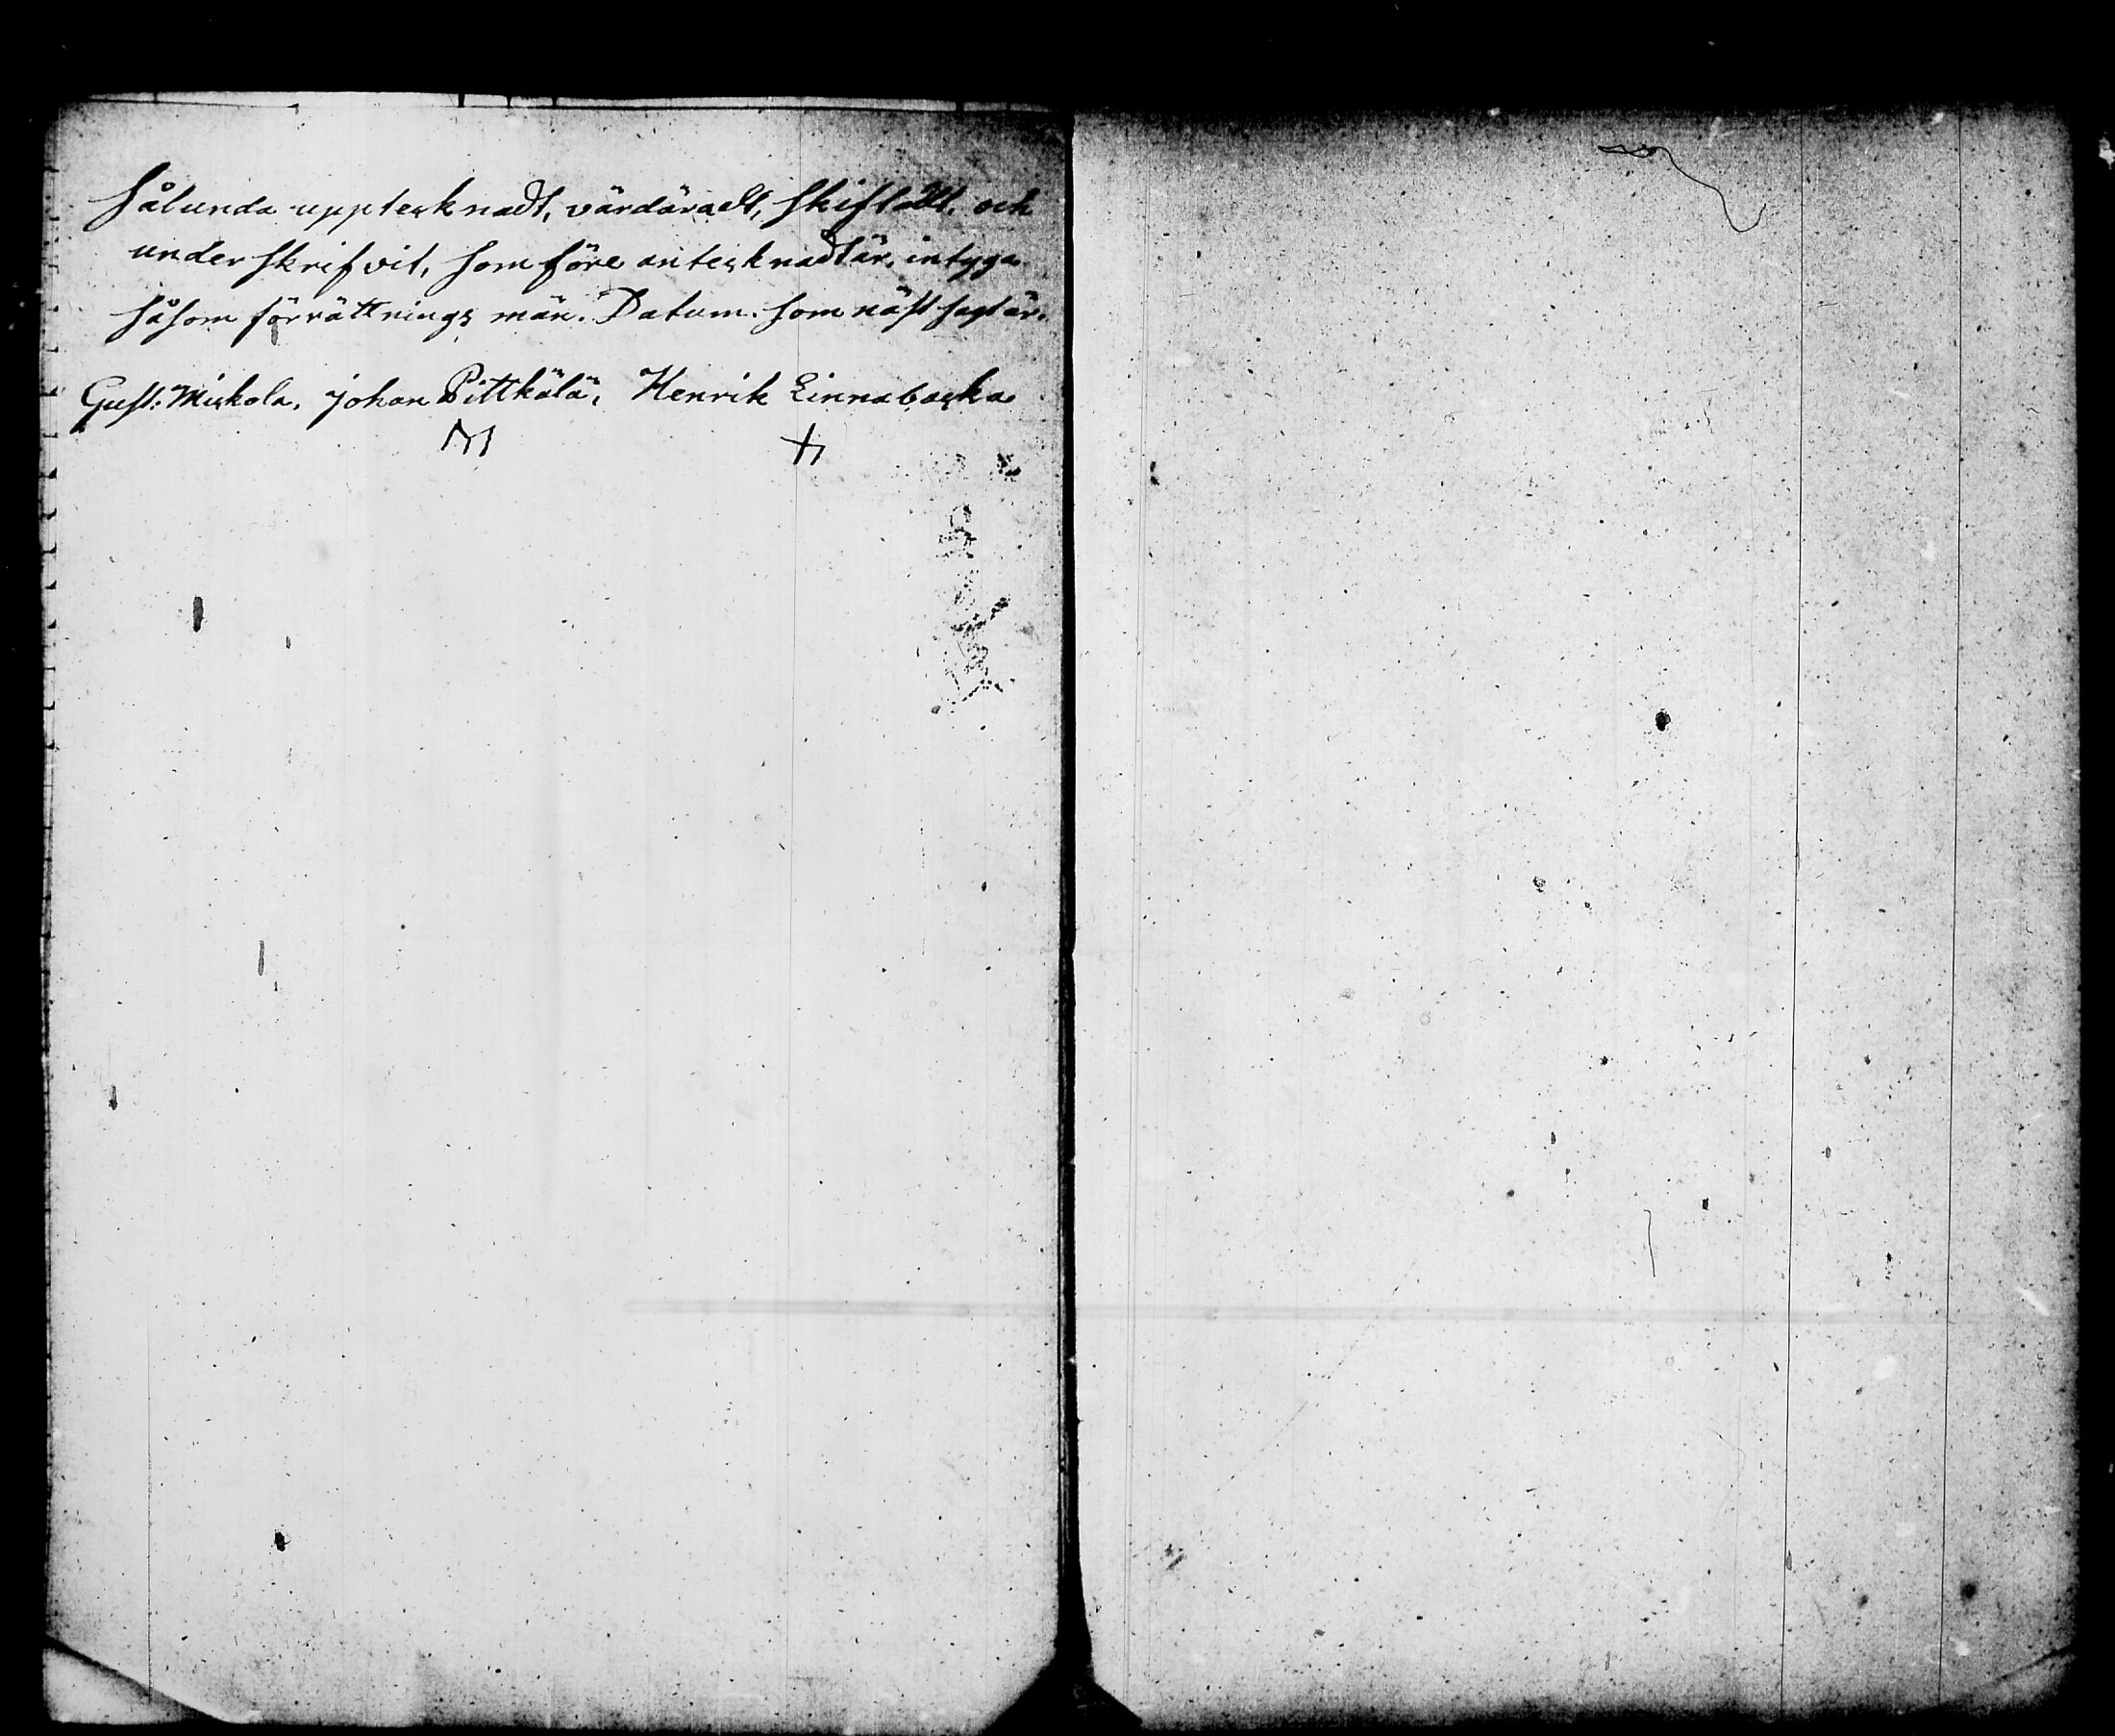 Sålunda uppteknadt, värdäradt, skiftadt, och
underskrifvit, som före anteknadt är, intyga
såsom förrättnings män. Datum som näst sagt är.
Gust: Miskola, Johan Pittkälä, Henrik Linnabaska